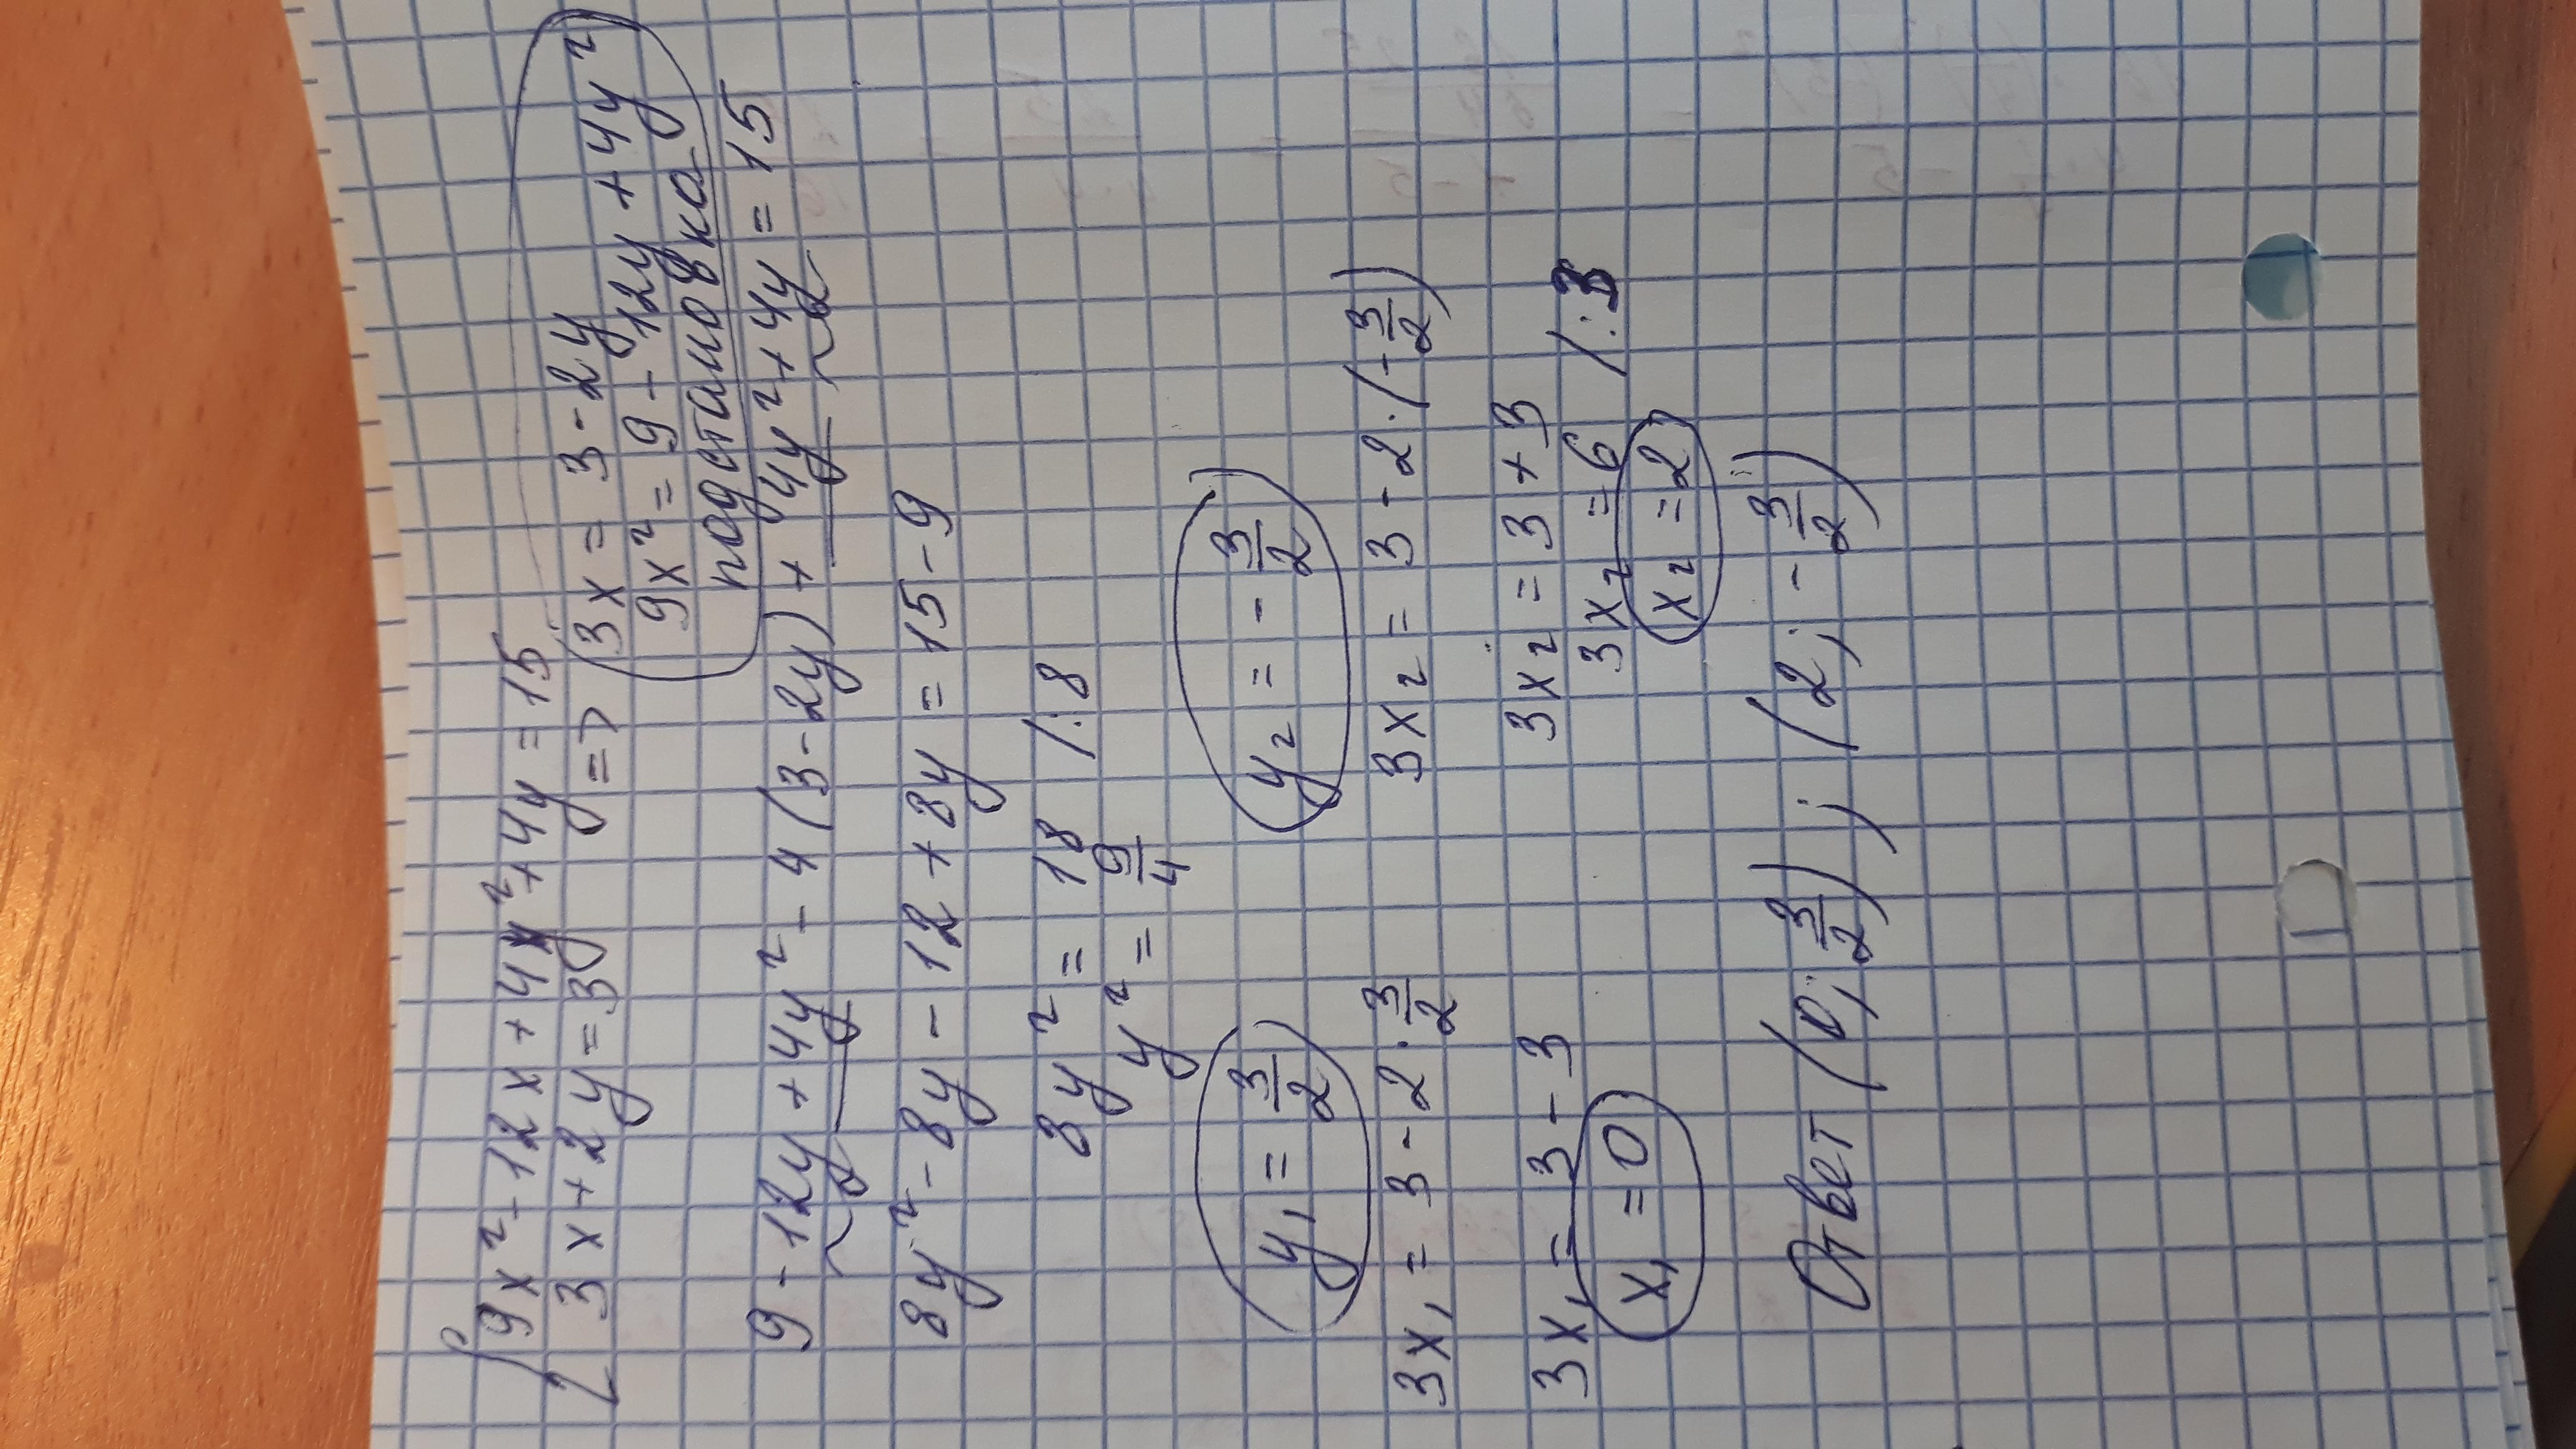 9x² - 12x + 4y² + 4y = 15
3x + 2y = 3 =>
3x = 3 - 2y
9x² = 9 - 12y + 4y²
подстановка
9 - 12y + 4y² - 4(3 - 2y) + 4y² + 4y = 15
8y² - 8y - 12 + 8y = 15 - 9
8y² = 18 /:8
y² = 9/4
y₁ = 3/2
y₂ = - 3/2
3x₁ = 3 - 2 · 3/2
3x₂ = 3 - 2 · (- 3/2)
3x₁ = 3 - 3
3x₂ = 3 + 3
x₁ = 0
3x₂ = 6 /:3
x₂ = 2
Ответ (0; 3/2); (2; - 3/2)